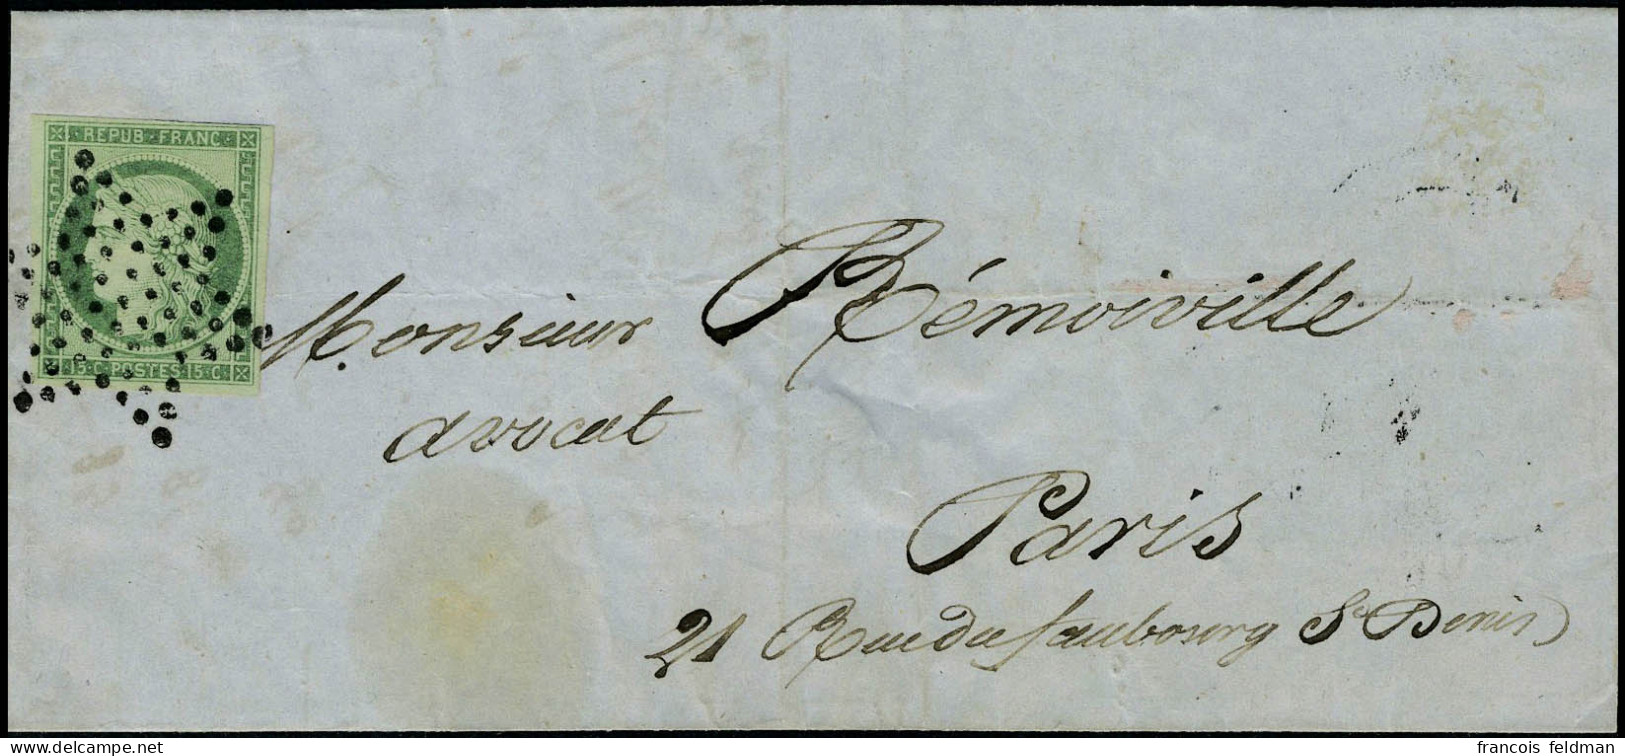 REPUB·FRANC·
15·C·POSTES·15·C·
Monsieur Rémoiville
avocat
Paris
21 Rue du faubourg St Denis
francois feldman